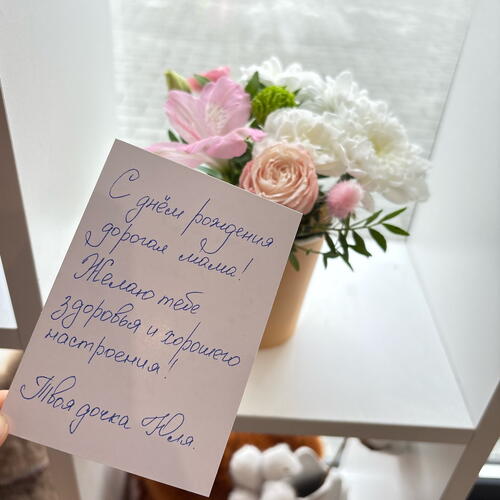 С днём рождения
дорогая мама!
Желаю тебе
здоровья и хорошего
настроения!
Твоя дочка Юля.